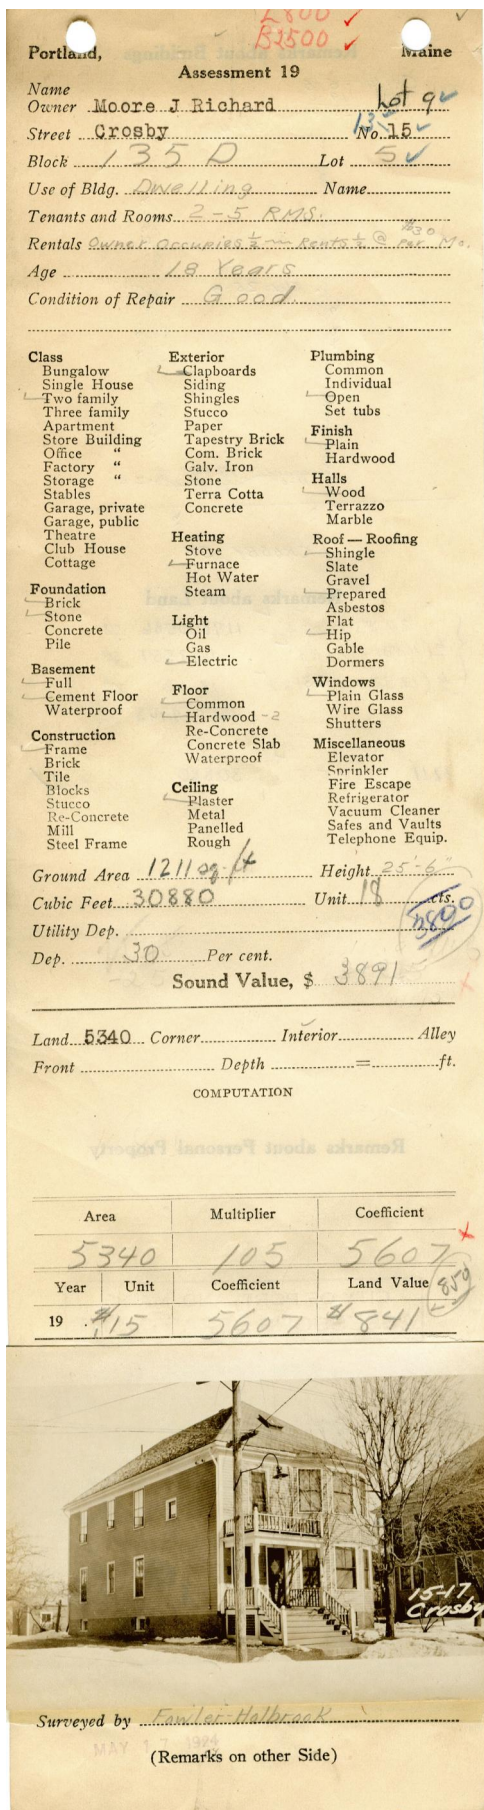 L800 ✓
B2500 ✓
Portland, Maine
Assessment 19
Name
Owner Moore J Richard Lot 9 ✓
Street Crosby 13- No. 15 ✓
Block 135 D Lot 5 ✓
Use of Bldg. Dwelling Name
Tenants and Rooms 2-5 RMS.
Rentals Owner Occupies ½ — Rents ½ @ $30 Per. Mo.
Age 18 Years
Condition of Repair Good
Class
Bungalow
Single House
Two family
Three family
Apartment
Store Building
Office "
Factory "
Storage "
Stables
Garage, private
Garage, public
Theatre
Club House
Cottage
Foundation
Brick
Stone
Concrete
Pile
Basement
Full
Cement Floor
Waterproof
Construction
Frame
Brick
Tile
Blocks
Stucco
Re-Concrete
Mill
Steel Frame
Exterior
Clapboards
Siding
Shingles
Stucco
Paper
Tapestry Brick
Com. Brick
Galv. Iron
Stone
Terra Cotta
Concrete
Heating
Stove
Furnace
Hot Water
Steam
Light
Oil
Gas
Electric
Floor
Common
Hardwood - 2
Re-Concrete
Concrete Slab
Waterproof
Ceiling
Plaster
Metal
Panelled
Rough
Plumbing
Common
Individual
Open
Set tubs
Finish
Plain
Hardwood
Halls
Wood
Terrazzo
Marble
Roof — Roofing
Shingle
Slate
Gravel
Prepared
Asbestos
Flat
Hip
Gable
Dormers
Windows
Plain Glass
Wire Glass
Shutters
Miscellaneous
Elevator
Sprinkler
Fire Escape
Refrigerator
Vacuum Cleaner
Safes and Vaults
Telephone Equip.
Ground Area 1211 sq. ft Height 25'-6"
Cubic Feet 30880 Unit 18 cts.
Utility Dep.
Dep. 30 Per cent.
Sound Value, $ 3891
Land 5340 Corner Interior Alley
Front Depth = ft.
COMPUTATION
Area Multiplier Coefficient
5340 105 5607
Year Unit Coefficient Land Value 850
19 $.15 5607 $841
15-17
Crosby
Surveyed by Fowler-Holbrook
MAY 17 1924
(Remarks on other Side)